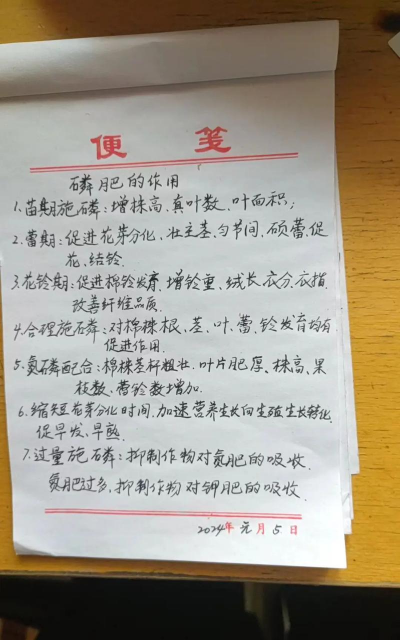 便 笺
磷肥的作用
1.苗期施磷:增株高、真叶数、叶面积;
2.蕾期:促进花芽分化、壮主茎、匀节间、硕蕾、促
花、结铃.
3.花铃期:促进棉铃发育、增铃重、绒长、衣分、衣指
改善纤维品质.
4.合理施磷:对棉株根、茎、叶、蕾、铃发育均有
促进作用.
5.氮磷配合:棉株茎杆粗壮、叶片肥厚、株高、果
枝数、蕾铃数增加.
6.缩短花芽分化时间、加速营养生长向生殖生长转化,
促早发、早熟.
7.过量施磷:抑制作物对氮肥的吸收.
氮肥过多,抑制作物对钾肥的吸收.
2024年 元 月 5 日